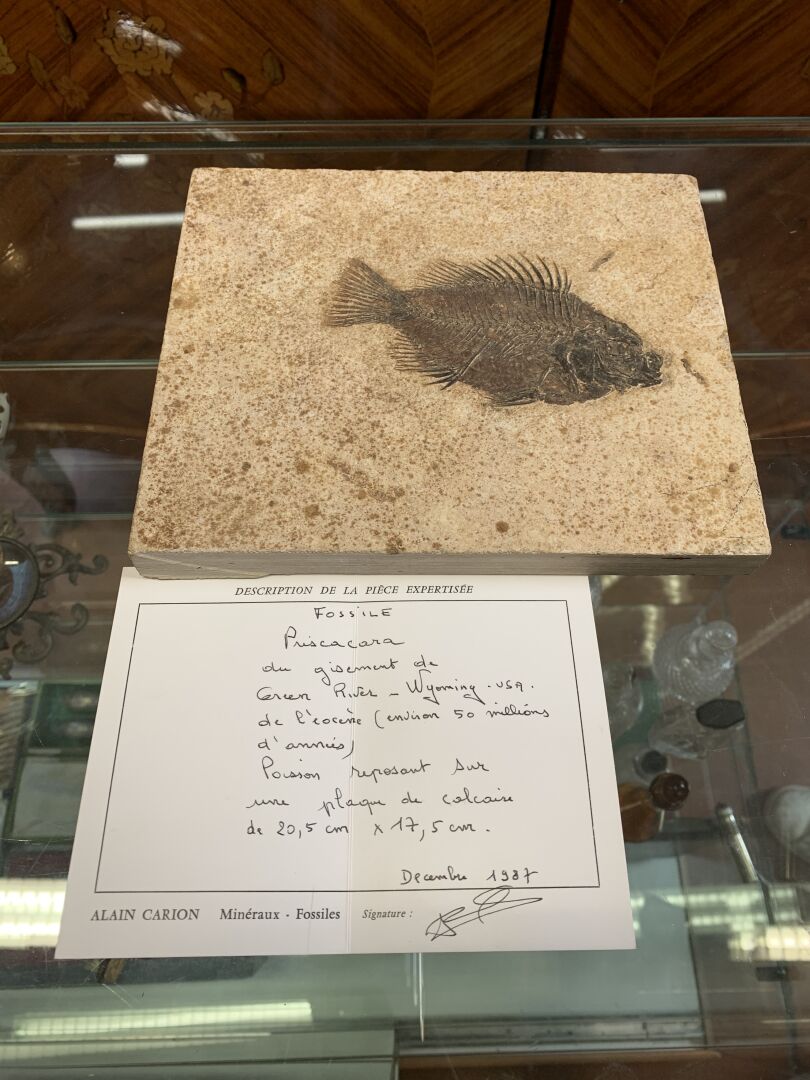 DESCRIPTION DE LA PIÈCE EXPERTISÉE
FOSSILE
Priscacara
du gisement de
Green River - Wyoming. USA.
de l'éocène (environ 50 millions
d'années)
Poisson reposant sur
une plaque de calcaire
de 20,5 cm x 17,5 cm.
Decembre 1987
ALAIN CARION Minéraux - Fossiles Signature :